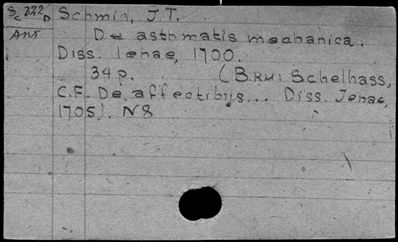 Sc222D Schmid, J.T.
Ans De asthmatis mechanica.
Diss. Ienae, 1700.
34 p. (BRM: Schelhass,
C.F. De affectibus... Diss. Jenae,
1705). N8